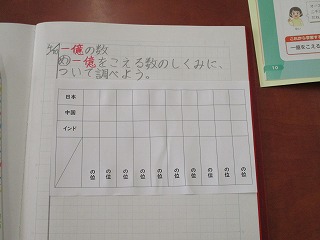 一億の数
め 一億をこえる数のしくみに、
ついて調べよう。
日本
中国
インド
の位 の位 の位 の位 の位 の位 の位 の位 の位
一億をこえる
10